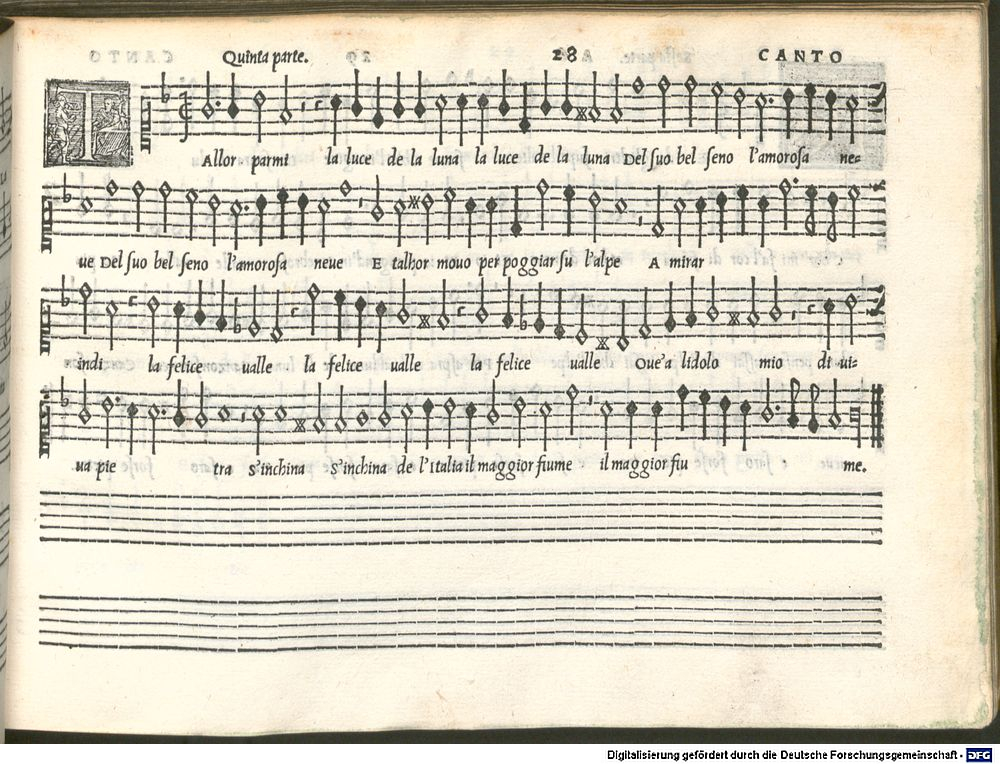 Quinta parte. 28 CANTO
TAllor parmi la luce de la luna la luce de la luna Del suo bel seno l'amorosa ne=
ue Del suo bel seno l'amorosa neue E talhor mouo per poggiar su l'alpe A mirar
indi la felice ualle la felice ualle la felice ualle Oue'a lidolo mio di ui=
ua pie tra s'inchina s'inchina de l'Italia il maggior fiume il maggior fiu me.
Digitalisierung gefördert durch die Deutsche Forschungsgemeinschaft - DFG